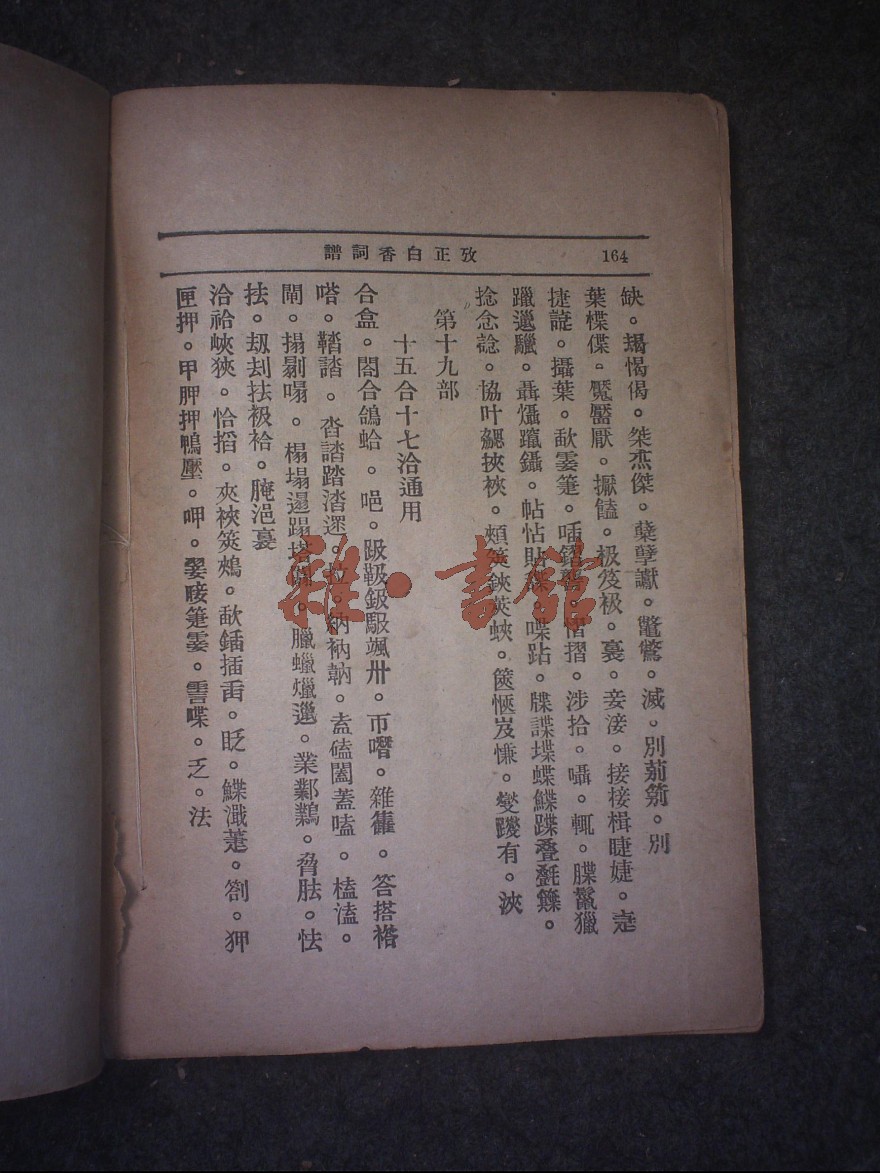 164
攷正白香詞譜
缺。朅愒偈。桀杰傑。櫱孽讞。鼈鷩。滅。別莂箣。別
葉楪偞。魘靨厭。擫饁。极笈衱。裛。妾淁。接椄楫睫婕。疌
捷䛩。攝葉。歃霎箑。啑鍤讋。慴摺。涉拾。囁。輒。牒鬣獵
躐邋䝓。聶懾躡鑷。帖怗貼。喋跕。牒諜堞蝶鰈蹀疊氎。
捻念諗。協叶勰挾裌。頰筴鋏莢蛺。篋愜岌慊。燮躞有。浹
第十九部
十五合十七洽通用
合盒。閤合鴿蛤。唈。趿靸鈒馺颯卅。帀噆。雜雥。答搭褡
嗒。鞳。沓誻踏涾遝。拉。納衲軜。盍磕闔蓋嗑。榼溘。
闒。搨嗒。榻塌遢蹋塔。臘蠟爉邋。業鄴鸈。脅胠。怯
抾。刼刦抾衱袷。腌浥裛
洽祫峽狹。恰掐。夾裌筴鵊。歃鍤插臿。眨。鰈萐。劄。狎
匣押。甲胛押鴨壓。呷。翣唼箑霎。霅喋。乏。法
雜·書館